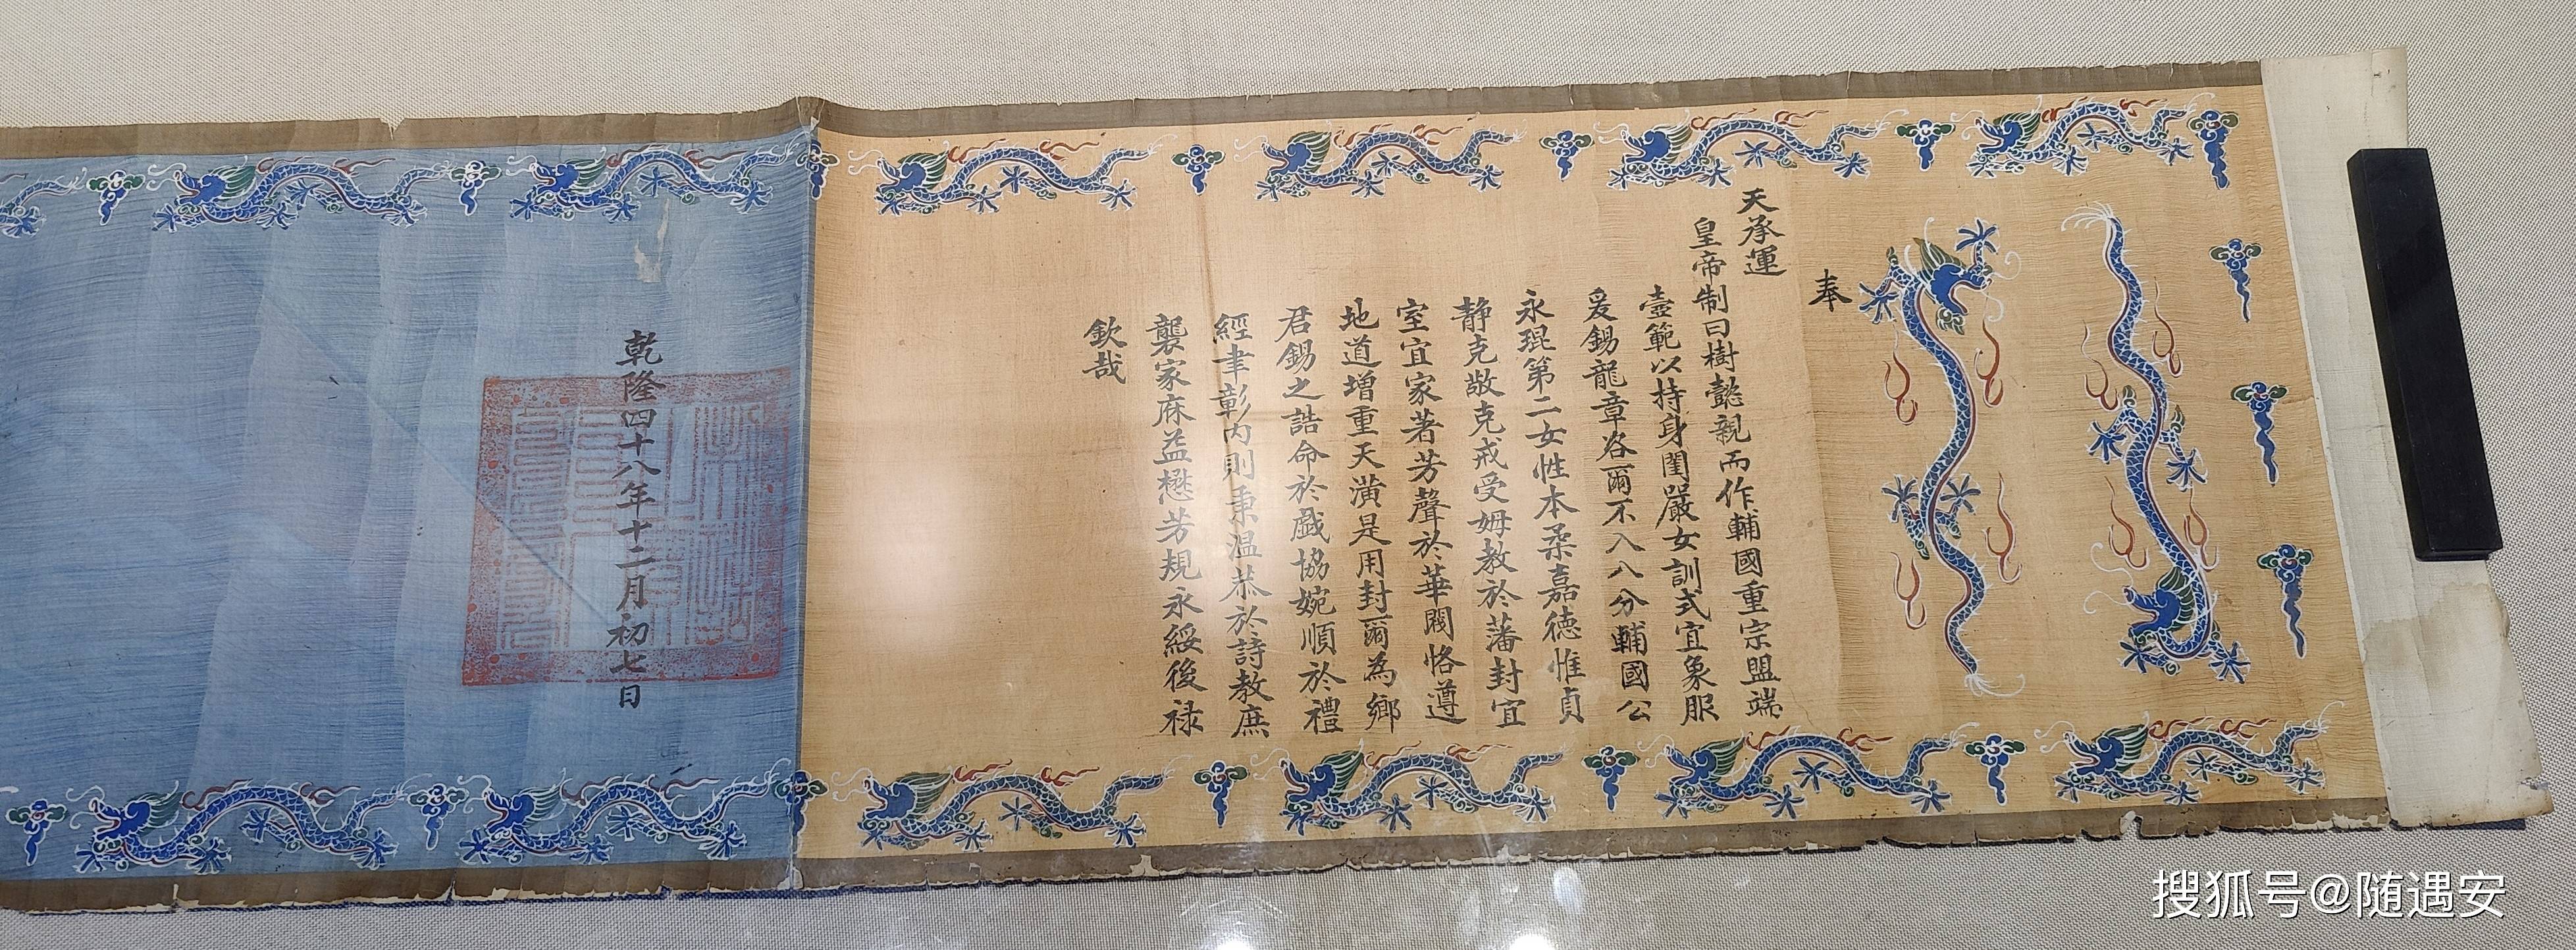 奉
天承運
皇帝制曰樹懿親而作輔國重宗盟端
壼範以持身閨嚴女訓式宜象服
爰錫龍章咨爾不入八分輔國公
永琨第二女性本柔嘉德惟貞
静克敬克戒受姆教於藩封宜
室宜家著芳聲於華閥恪遵
地道增重天潢是用封爾為鄉
君錫之誥命於戲協婉順於禮
經聿彰内則秉温恭於詩教庶
襲家庥益懋芳規永綏後禄
欽哉
乾隆四十八年十二月初七日
搜狐号@随遇安